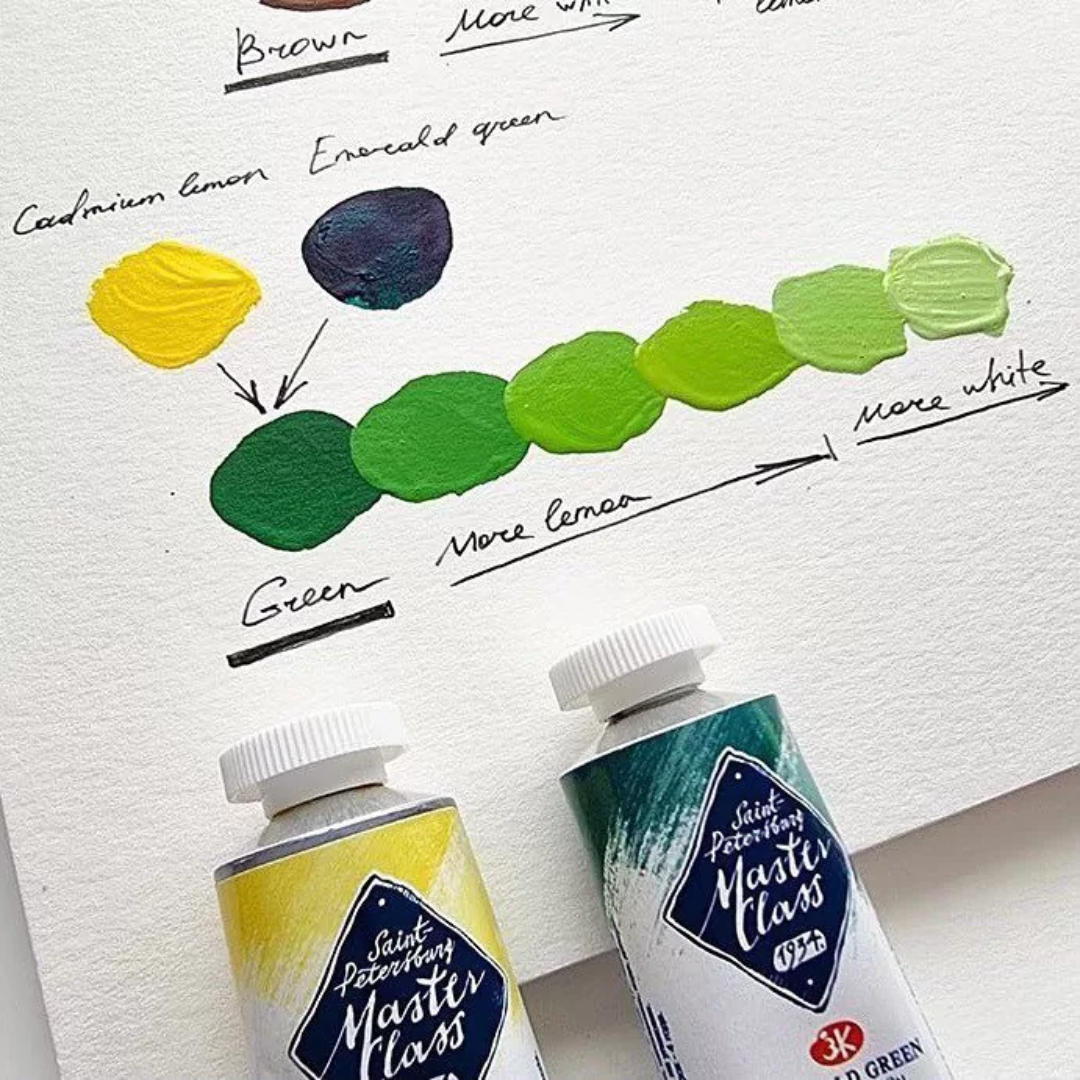 Brown
More
Cadmium lemon Emerald green
More white
More lemon
Green
Saint-
Petersburg
Master
Class
1934
Saint-
Petersburg
Master
Class
GREEN